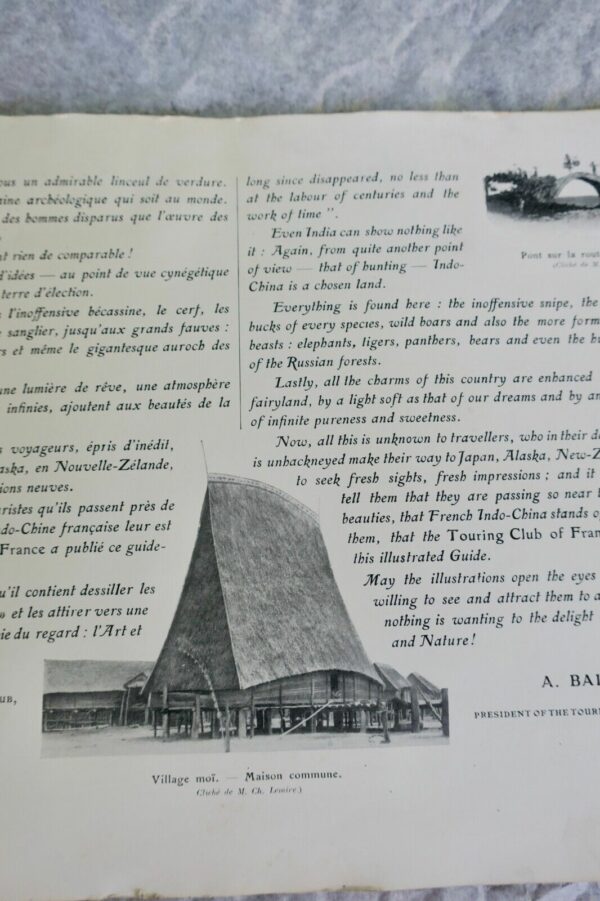 ous un admirable linceul de verdure.
mine archéologique qui soit au monde.
des hommes disparus que l'œuvre des
nt rien de comparable !
d'idées — au point de vue cynégétique
terre d'élection.
l'inoffensive bécassine, le cerf, les
sanglier, jusqu'aux grands fauves :
rs et même le gigantesque auroch des
une lumière de rêve, une atmosphère
infinies, ajoutent aux beautés de la
s voyageurs, épris d'inédit,
laska, en Nouvelle-Zélande,
ions neuves.
uristes qu'ils passent près de
do-Chine française leur est
France a publié ce guide-
u'il contient dessiller les
» et les attirer vers une
ie du regard : l'Art et
UB,
long since disappeared, no less than
at the labour of centuries and the
work of time ".
Even India can show nothing like
it : Again, from quite another point
of view — that of hunting — Indo-
China is a chosen land.
Everything is found here : the inoffensive snipe, the
bucks of every species, wild boars and also the more form
beasts : elephants, tigers, panthers, bears and even the hu
of the Russian forests.
Lastly, all the charms of this country are enhanced
fairyland, by a light soft as that of our dreams and by an
of infinite pureness and sweetness.
Now, all this is unknown to travellers, who in their de
is unhackneyed make their way to Japan, Alaska, New-Z
to seek fresh sights, fresh impressions ; and it
tell them that they are passing so near t
beauties, that French Indo-China stands o
them, that the Touring Club of Fran
this illustrated Guide.
May the illustrations open the eyes
willing to see and attract them to a
nothing is wanting to the delight
and Nature !
A. BAL
PRESIDENT OF THE TOURI
Pont sur la rout
(Cliché de M.
Village moï. — Maison commune.
(Cliché de M. Ch. Lemire.)